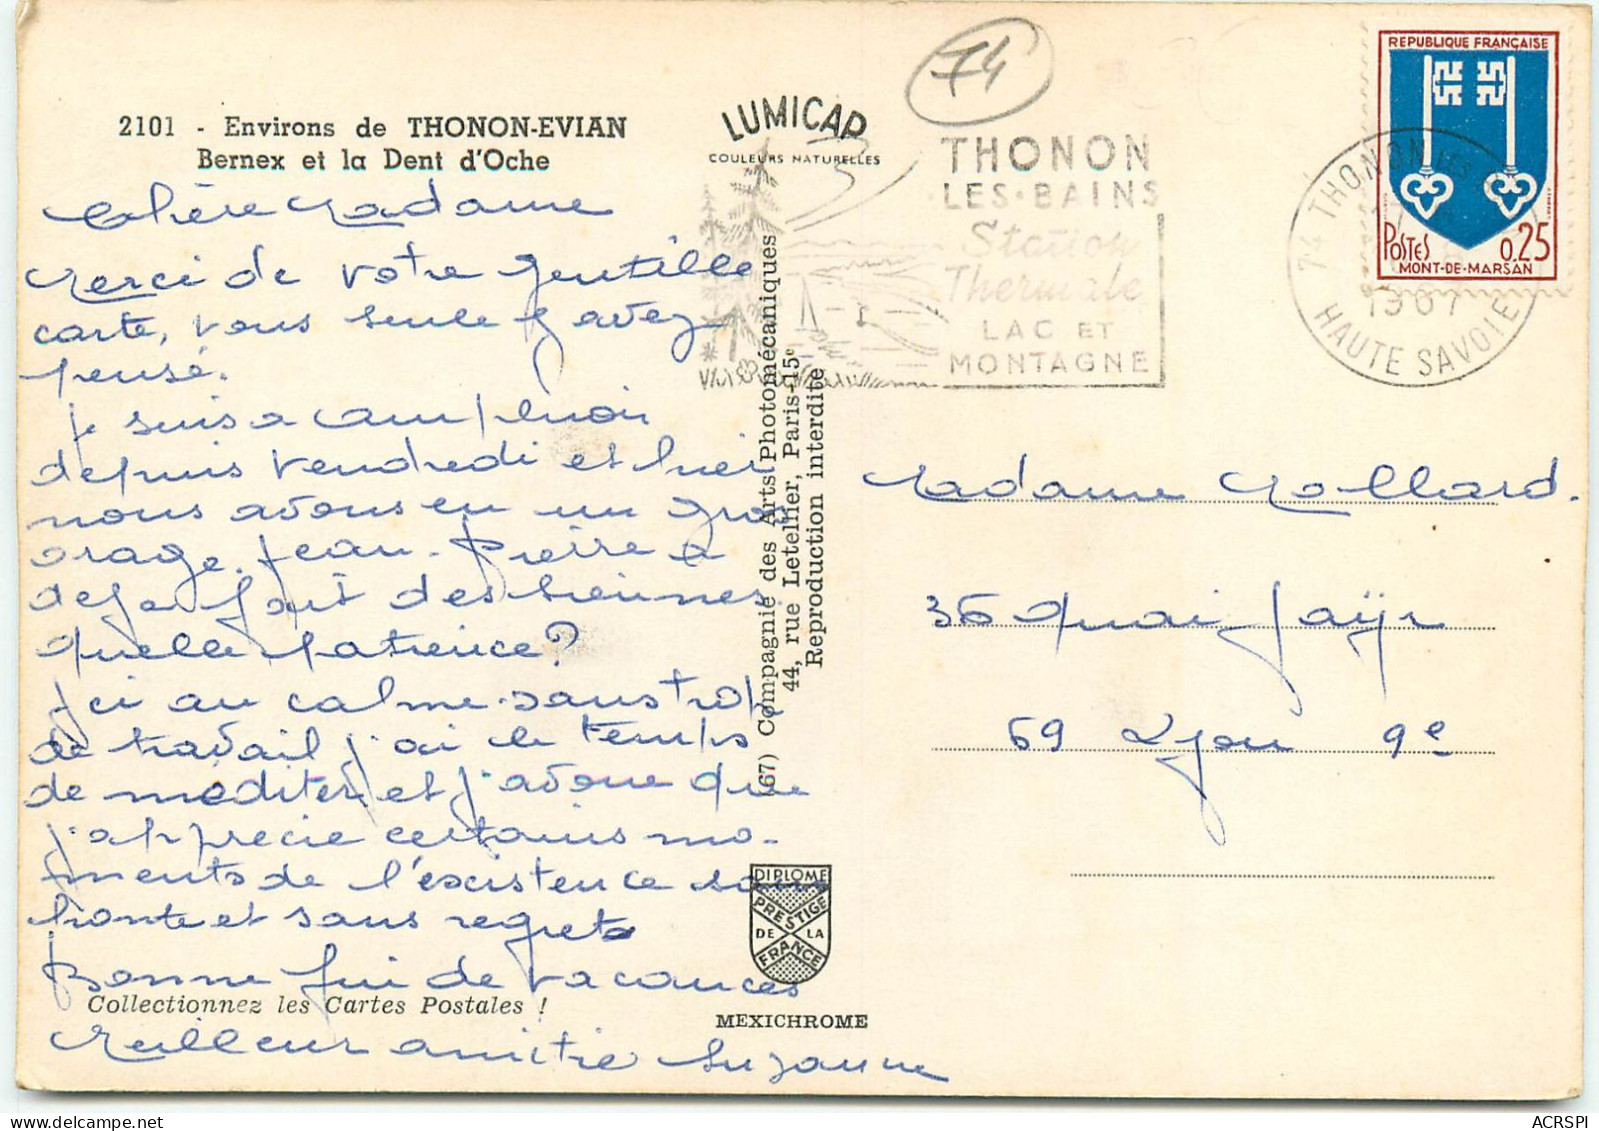 74
2101 - Environs de THONON-EVIAN
Bernex et la Dent d'Oche
LUMICAP
COULEURS NATURELLES
THONON
LES·BAINS
Station
Thermale
LAC ET
MONTAGNE
74 THONON LES
1967
HAUTE SAVOIE
REPUBLIQUE FRANÇAISE
POSTES 0.25
MONT-DE-MARSAN
Chère Madame
Merci de votre gentille
carte, vous seule y avez
pensé.
Je suis a
depuis vendredi et hier
nous avons eu un gros
orage. Jean-Pierre a
deja fait des siennes
quelle patience?
Ici au calme sans trop
de travail j'ai le temps
de mediter et j'avoue que
j'apprecie certains mo-
ments de l'existence sans
honte et sans regrets
Bonne fin de vacances
Collectionnez les Cartes Postales !
Meilleur amitie Suzanne
(67) Compagnie des Arts Photomécaniques
44, rue Letellier, Paris-15e
Reproduction interdite
DIPLOME
PRESTIGE
DE LA
FRANCE
MEXICHROME
Madame Rollard.
36 Quai Jaÿr
69 Lyon 9e
ACRSPI